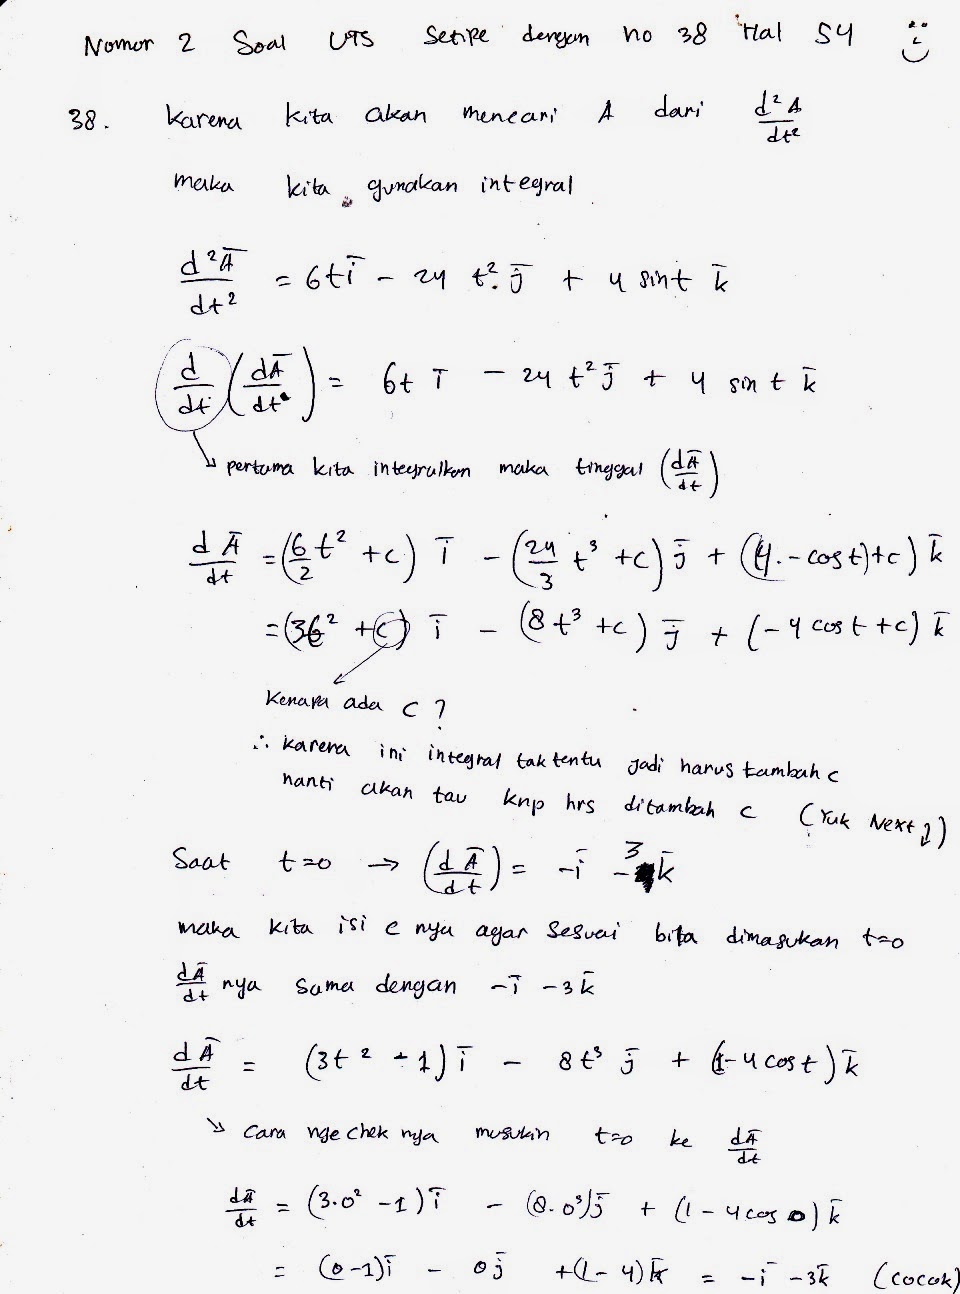 Nomor 2 Soal UTS Setipe dengan no 38 Hal 54
38. Karena kita akan mencari A dari d²A/dt²
maka kita gunakan integral
d²A̅/dt² = 6t i̅ - 24 t² j̅ + 4 sint k̅
d/dt (dA̅/dt) = 6t i̅ - 24 t² j̅ + 4 sin t k̅
↳ pertama kita integralkan maka tinggal (dA̅/dt)
dA̅/dt = (6/2 t² + c) i̅ - (24/3 t³ + c) j̅ + (4.-cos t)+c) k̅
= (3t² + c) i̅ - (8t³ + c) j̅ + (-4 cos t + c) k̅
Kenapa ada c ?
∴ karena ini integral tak tentu jadi harus tambah c
nanti akan tau knp hrs ditambah c (Yuk Next ↓)
Saat t=0 → (dA̅/dt) = -i̅ -3 k̅
maka kita isi c nya agar sesuai bila dimasukan t=0
dA̅/dt nya sama dengan -i̅ -3k̅
dA̅/dt = (3t² - 1) i̅ - 8t³ j̅ + (1-4cos t) k̅
↳ Cara nge chek nya musukin t=0 ke dA̅/dt
dA̅/dt = (3.0² - 1) i̅ - (8.0³) j̅ + (1 - 4 cos 0) k̅
= (0-1) i̅ - 0 j̅ + (1-4) k̅ = -i̅ -3k̅ (cocok)